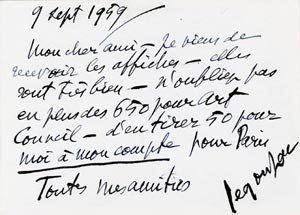 9 sept 1959
Mon cher ami – je viens de
recevoir les affiches – elles
sont très bien – n'oubliez pas
en plus des 650 pour Art
Conseil – d'en tirer 50 pour
moi à mon compte pour Paris
Toutes mes amitiés